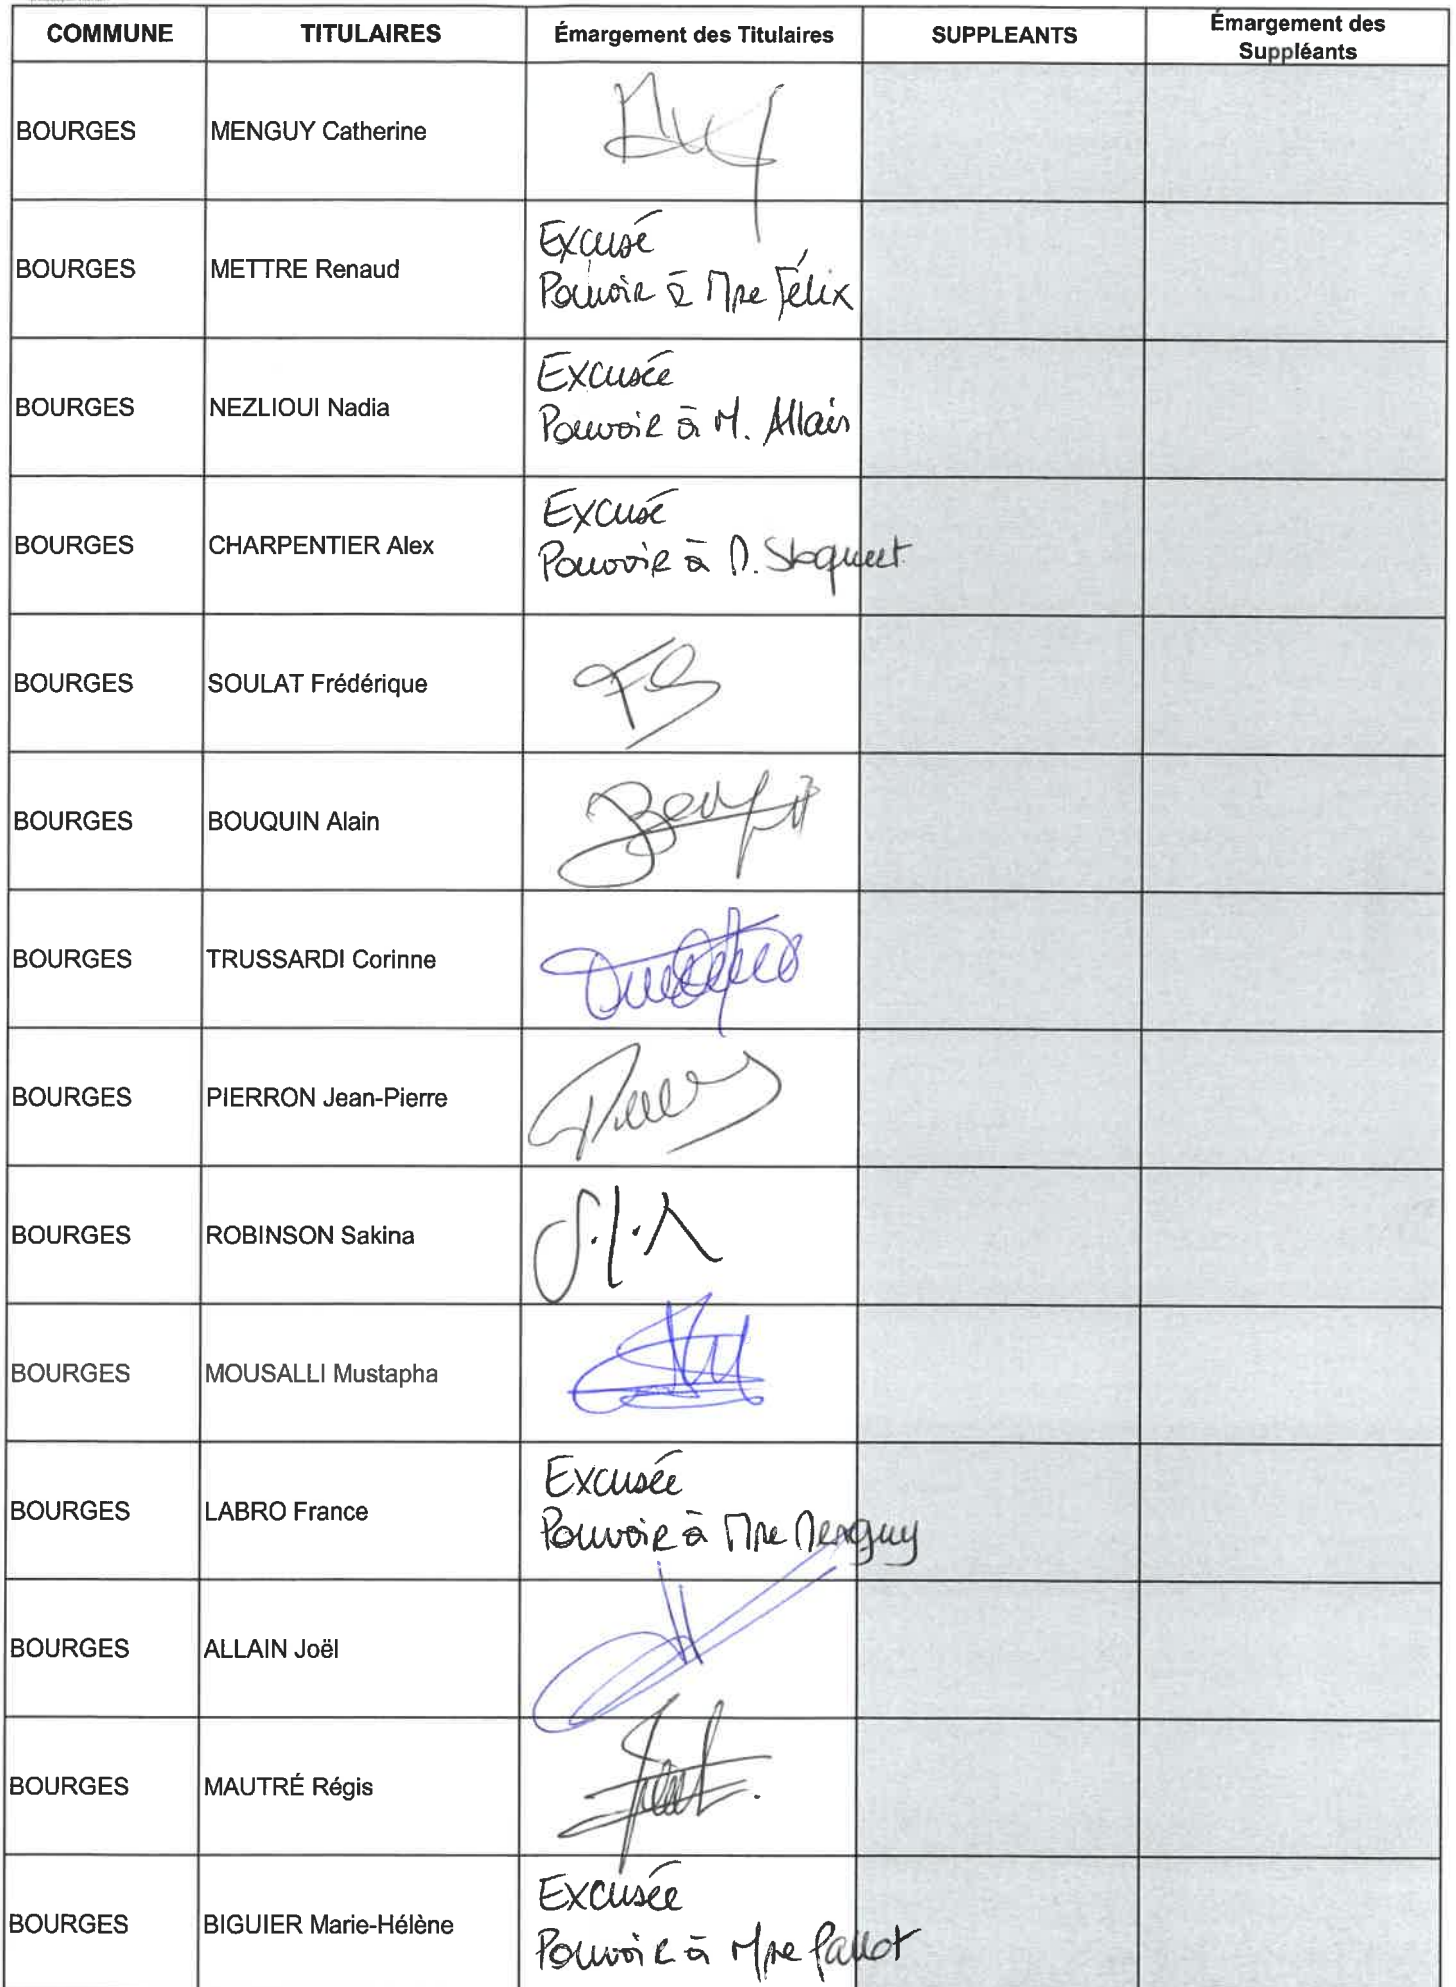 COMMUNE TITULAIRES Émargement des Titulaires SUPPLEANTS Émargement des
Suppléants
BOURGES MENGUY Catherine
BOURGES METTRE Renaud Excusé
Pouvoir à Mme Félix
BOURGES NEZLIOUI Nadia Excusée
Pouvoir à M. Allain
BOURGES CHARPENTIER Alex Excusé
Pouvoir à M.
BOURGES SOULAT Frédérique
BOURGES BOUQUIN Alain
BOURGES TRUSSARDI Corinne
BOURGES PIERRON Jean-Pierre
BOURGES ROBINSON Sakina
BOURGES MOUSALLI Mustapha
BOURGES LABRO France Excusée
Pouvoir à Mme Menguy
BOURGES ALLAIN Joël
BOURGES MAUTRÉ Régis
BOURGES BIGUIER Marie-Hélène Excusée
Pouvoir à Mme